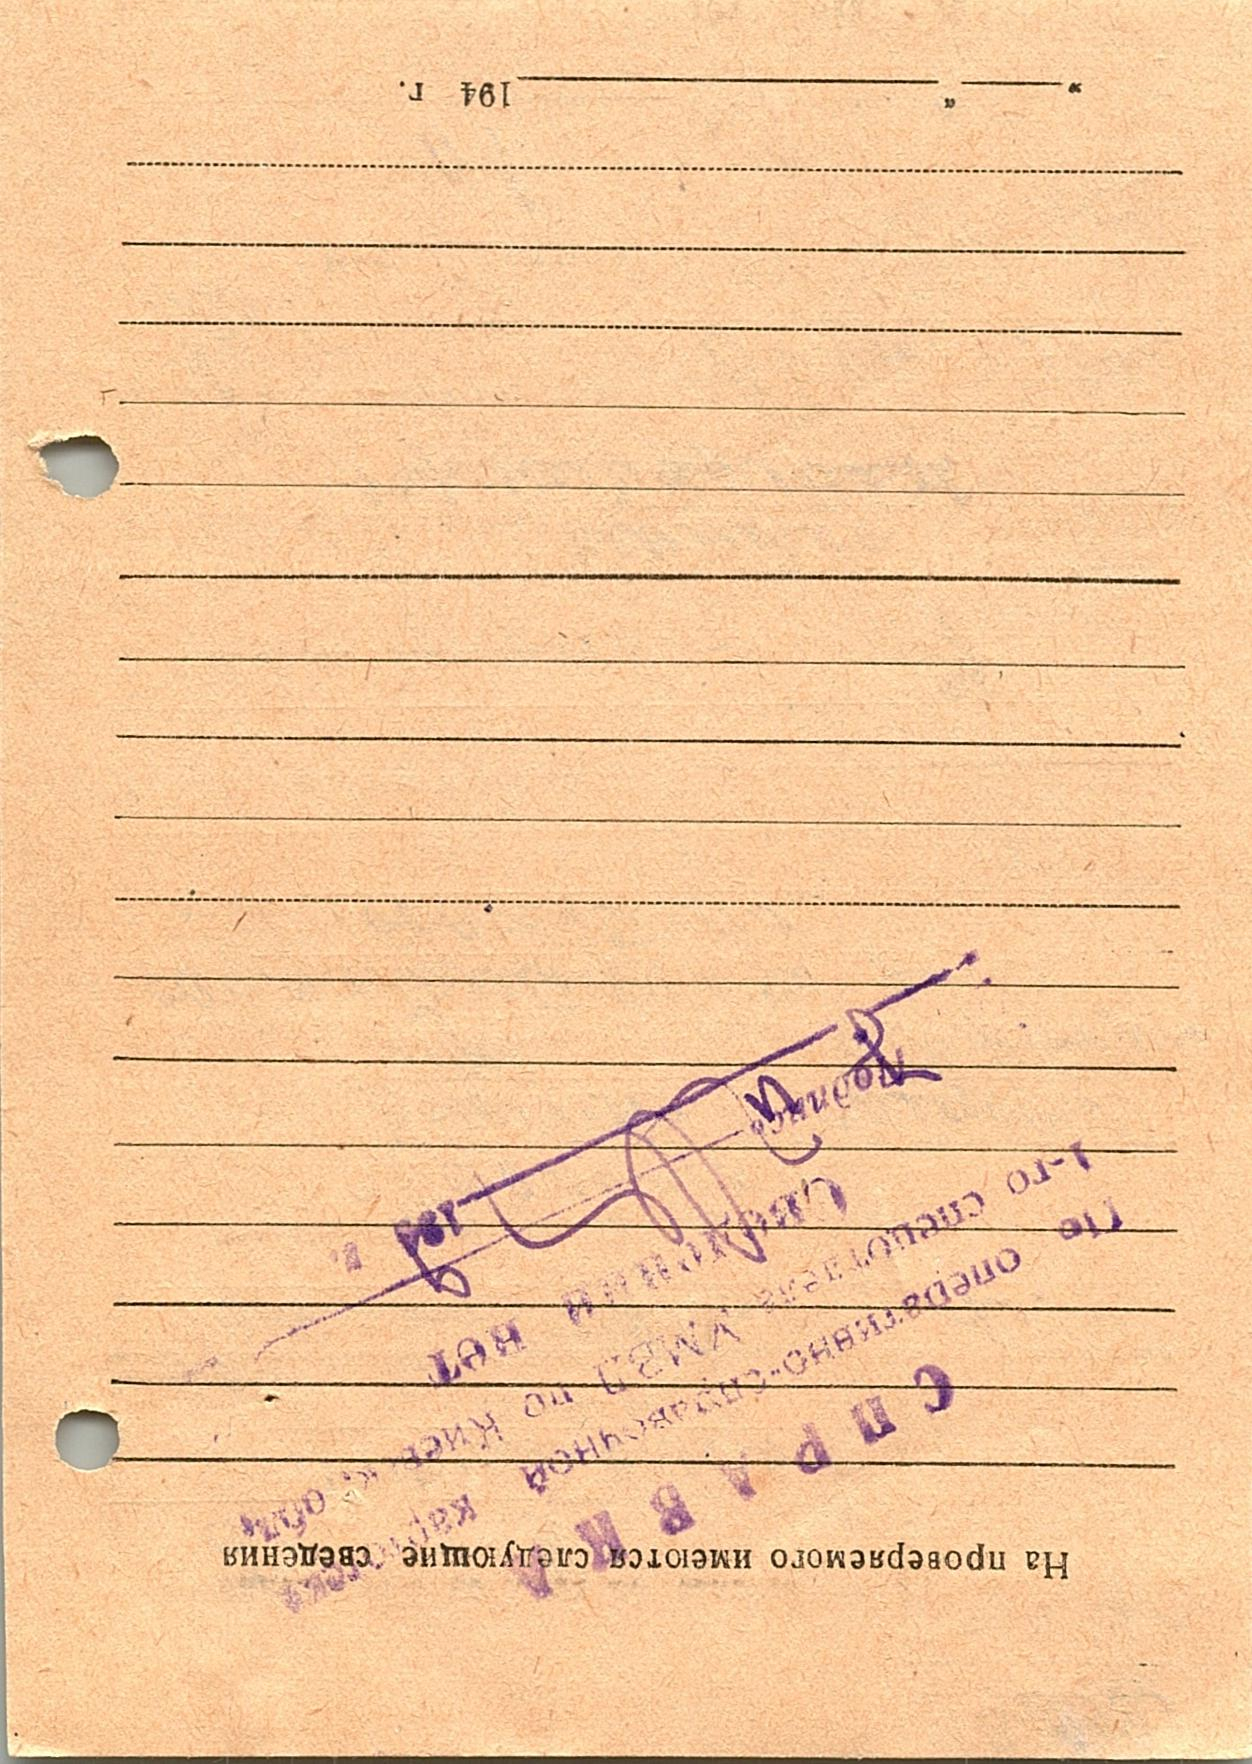 На проверяемого имеются следующие сведения
СПРАВКА
По оперативно-справочной картотеке
1-го спецотдела УМВД по Киевск. обл.
Сведений нет
Подпись
194 г.
" " 194 г.